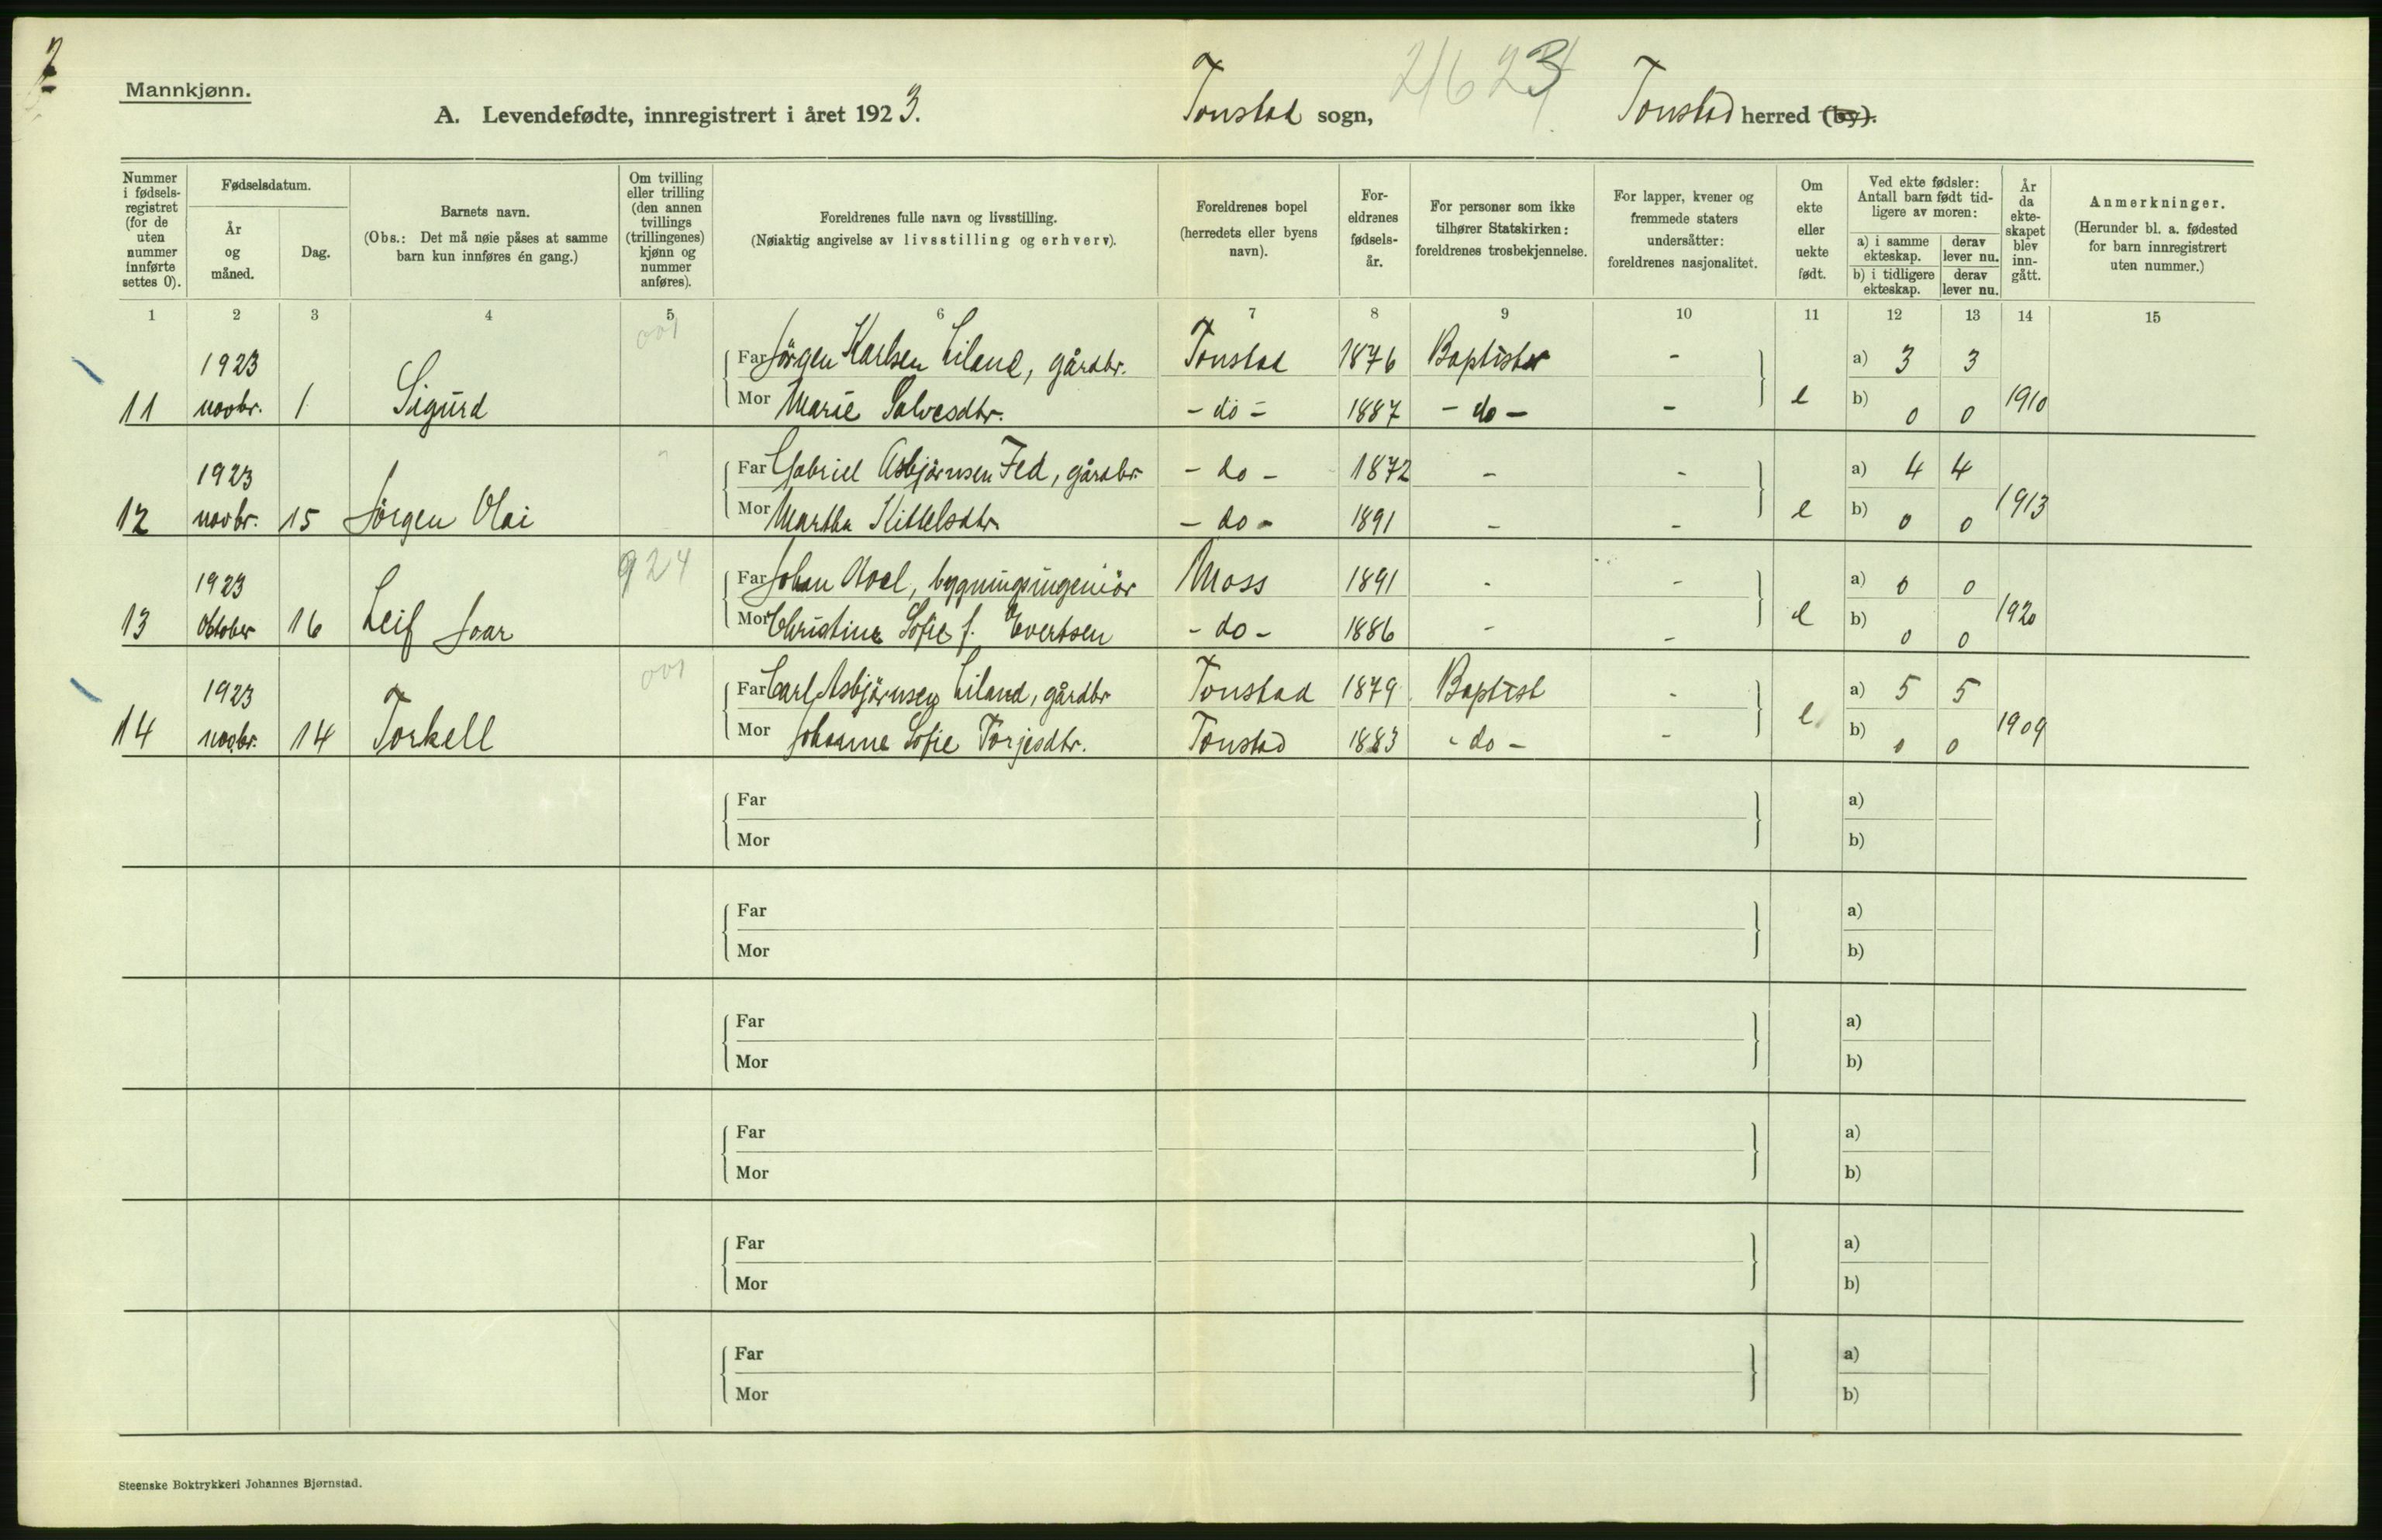 2
Mannkjønn.
A. Levendefødte, innregistrert i året 1923.
Tonstad sogn, Tonstad herred (by).
Nummer i fødsels-registret (for de uten nummer innførte settes 0).
Fødselsdatum.
År og måned.
Dag.
Barnets navn.
(Obs.: Det må nøie påses at samme barn kun innføres én gang.)
Om tvilling eller trilling (den annen tvillings (trillingenes) kjønn og nummer anføres).
Foreldrenes fulle navn og livsstilling.
(Nøiaktig angivelse av livsstilling og erhverv).
Foreldrenes bopel (herredets eller byens navn).
For-eldrenes fødsels-år.
For personer som ikke tilhører Statskirken: foreldrenes trosbekjennelse.
For lapper, kvener og fremmede staters undersåtter: foreldrenes nasjonalitet.
Om ekte eller uekte født.
Ved ekte fødsler: Antall barn født tid-ligere av moren:
a) i samme ekteskap.
derav lever nu.
b) i tidligere ekteskap.
derav lever nu.
År da ekte-skapet blev inn-gått.
Anmerkninger.
(Herunder bl. a. fødested for barn innregistrert uten nummer.)
1 2 3 4 5 6 7 8 9 10 11 12 13 14 15
001
1923 Far Jörgen Karlsen Liland, gårdbr. Tonstad 1876 Baptister - a) 3 3
11 novbr. 1 Sigurd Mor Marie Salvesdtr. - do - 1887 - do - - e b) 0 0 1910
1923 Far Gabriel Asbjörnsen Fed, gårdbr. - do - 1872 - - a) 4 4
12 novbr. 15 Jörgen Olai Mor Martha Kittelsdtr. - do - 1891 - - e b) 0 0 1913
924
1923 Far Johan Avel, bygningsingeniör Moss 1891 - - a) 0 0
13 Oktober 16 Leif Ivar Mor Christine Sofie f. Evertsen - do - 1886 - - e b) 0 0 1920
001
1923 Far Carl Asbjörnsen Liland, gårdbr Tonstad 1879 Baptist - a) 5 5
14 novbr. 14 Torkell Mor Johanne Sofie Torjesdtr. Tonstad 1883 - do - - e b) 0 0 1909
Far a)
Mor b)
Far a)
Mor b)
Far a)
Mor b)
Far a)
Mor b)
Far a)
Mor b)
Far a)
Mor b)
Steenske Boktrykkeri Johannes Bjørnstad.